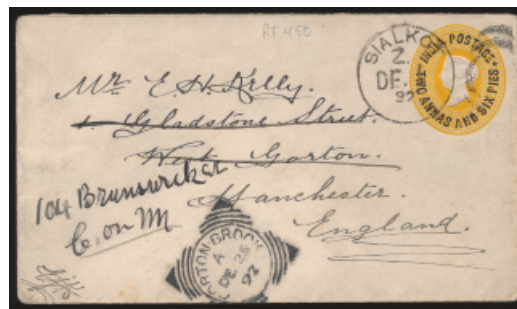 RF 450
SIALKO
2.
DE.
92
INDIA POSTAGE
TWO ANNAS AND SIX PIES
Mr E. H. Kelly.
1 Gladstone Street.
West Gorton.
Manchester.
England.
104 Brunswick st
C. on M
GORTON-BROOK
A
DE 26
92